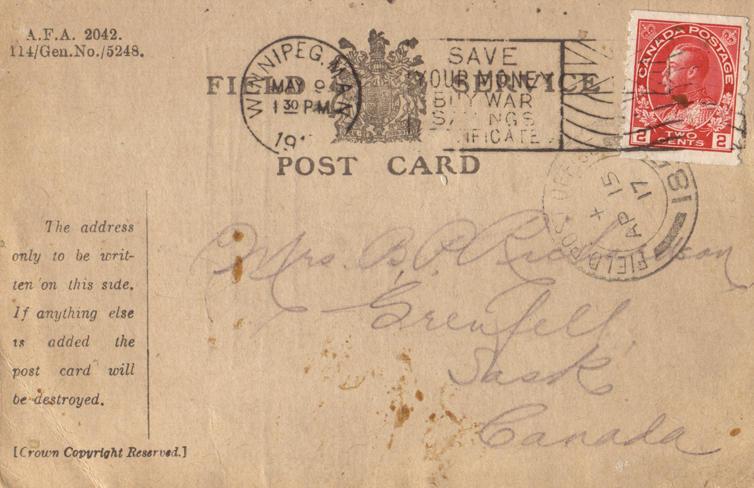 A.F.A. 2042.
114/Gen.No./5248.
FIELD SERVICE
POST CARD
WINNIPEG, MAN
MAY 9
1 30 PM
191
SAVE
YOUR MONEY
BUY WAR
SAVINGS
IFICATE
CANADA POSTAGE
2 TWO 2
CENTS
FIELD POST OFFICE
X
AP 15
17
18
The address
only to be writ-
ten on this side.
If anything else
is added the
post card will
be destroyed.
[Crown Copyright Reserved.]
Mrs. B. P. Richardson
Grenfell
Sask
Canada